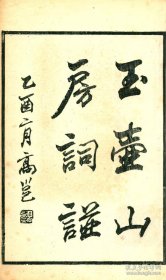 玉壺山
房詞譔
乙酉六月高邕